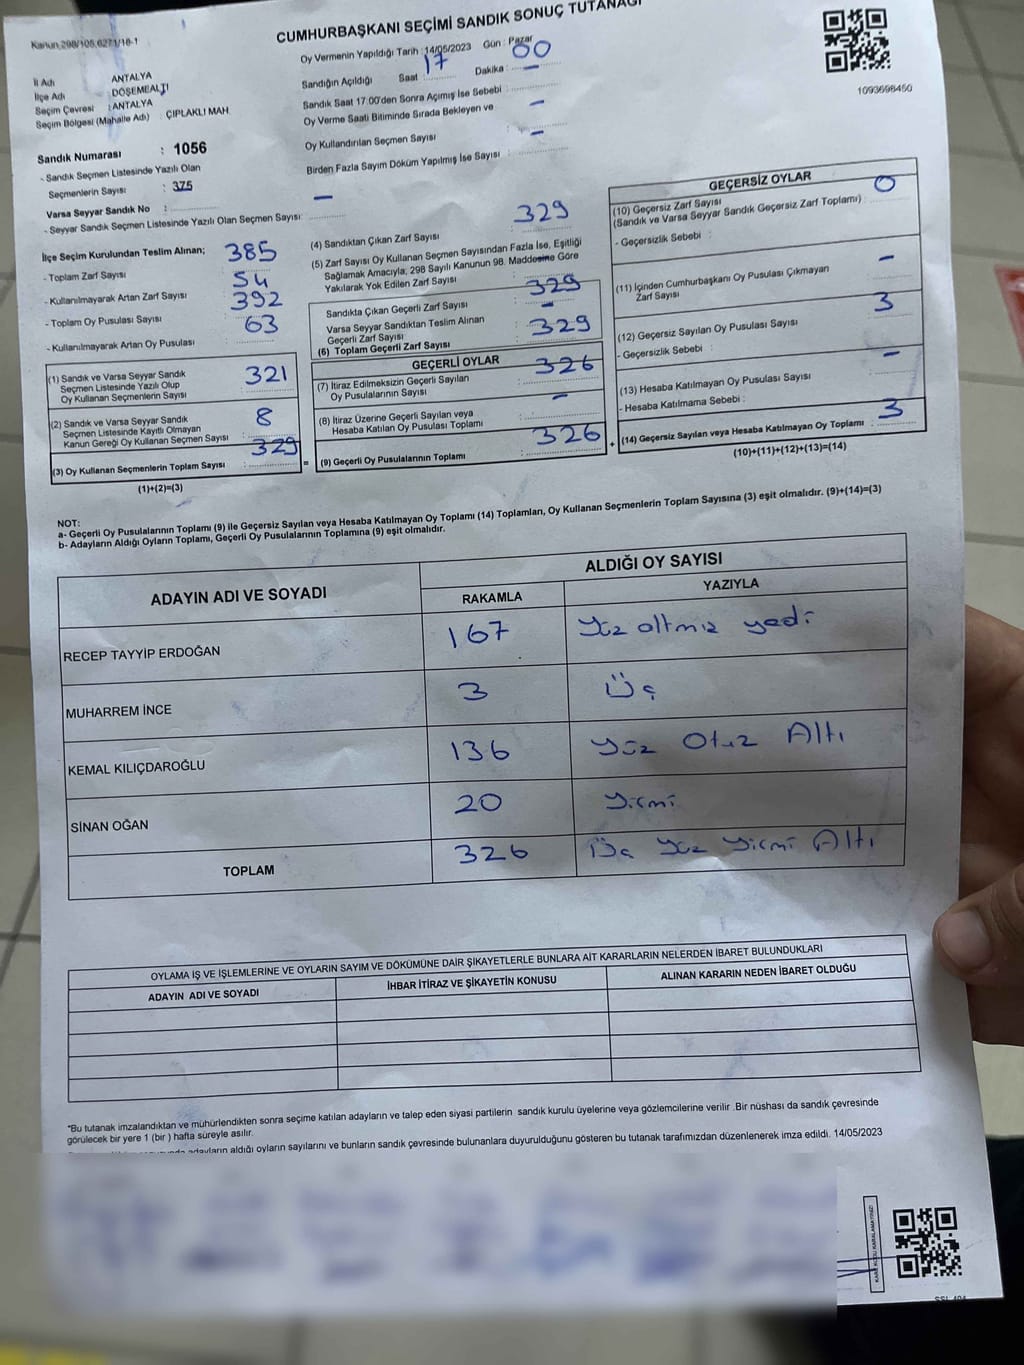 CUMHURBAŞKANI SEÇİMİ SANDIK SONUÇ TUTANAĞI
Kanun 298/105,6271/18-1
İl Adı ANTALYA
İlçe Adı DÖŞEMEALTI
Seçim Çevresi : ANTALYA
Seçim Bölgesi (Mahalle Adı) : ÇIPLAKLI MAH
Sandık Numarası : 1056
- Sandık Seçmen Listesinde Yazılı Olan
Seçmenlerin Sayısı : 375
Varsa Seyyar Sandık No : –
- Seyyar Sandık Seçmen Listesinde Yazılı Olan Seçmen Sayısı:
Oy Vermenin Yapıldığı Tarih : 14/05/2023 Gün : Pazar
Sandığın Açıldığı Saat 17 Dakika : 00
Sandık Saat 17:00'den Sonra Açımış İse Sebebi : –
Oy Verme Saati Bitiminde Sırada Bekleyen ve
Oy Kullandırılan Seçmen Sayısı : –
Birden Fazla Sayım Döküm Yapılmış İse Sayısı : –
1093698450
İlçe Seçim Kurulundan Teslim Alınan;
- Toplam Zarf Sayısı : 385
- Kullanılmayarak Artan Zarf Sayısı : 54
- Toplam Oy Pusulası Sayısı : 392
- Kullanılmayarak Artan Oy Pusulası : 63
(1) Sandık ve Varsa Seyyar Sandık
Seçmen Listesinde Yazılı Olup
Oy Kullanan Seçmenlerin Sayısı : 321
(2) Sandık ve Varsa Seyyar Sandık
Seçmen Listesinde Kayıtlı Olmayan
Kanun Gereği Oy Kullanan Seçmen Sayısı : 8
(3) Oy Kullanan Seçmenlerin Toplam Sayısı : 329
(1)+(2)=(3)
(4) Sandıktan Çıkan Zarf Sayısı : 329
(5) Zarf Sayısı Oy Kullanan Seçmen Sayısından Fazla İse, Eşitliği
Sağlamak Amacıyla; 298 Sayılı Kanunun 98. Maddesine Göre
Yakılarak Yok Edilen Zarf Sayısı : –
Sandıkta Çıkan Geçerli Zarf Sayısı : 329
Varsa Seyyar Sandıktan Teslim Alınan
Geçerli Zarf Sayısı : –
(6) Toplam Geçerli Zarf Sayısı : 329
GEÇERLİ OYLAR
(7) İtiraz Edilmeksizin Geçerli Sayılan
Oy Pusulalarının Sayısı : 326
(8) İtiraz Üzerine Geçerli Sayılan veya
Hesaba Katılan Oy Pusulası Toplamı : –
(9) Geçerli Oy Pusulalarının Toplamı : 326
= +
GEÇERSİZ OYLAR
(10) Geçersiz Zarf Sayısı
(Sandık ve Varsa Seyyar Sandık Geçersiz Zarf Toplamı) : 0
- Geçersizlik Sebebi :
(11) İçinden Cumhurbaşkanı Oy Pusulası Çıkmayan
Zarf Sayısı : –
(12) Geçersiz Sayılan Oy Pusulası Sayısı : 3
- Geçersizlik Sebebi :
(13) Hesaba Katılmayan Oy Pusulası Sayısı : –
- Hesaba Katılmama Sebebi :
(14) Geçersiz Sayılan veya Hesaba Katılmayan Oy Toplamı : 3
(10)+(11)+(12)+(13)=(14)
NOT:
a- Geçerli Oy Pusulalarının Toplamı (9) ile Geçersiz Sayılan veya Hesaba Katılmayan Oy Toplamı (14) Toplamları, Oy Kullanan Seçmenlerin Toplam Sayısına (3) eşit olmalıdır. (9)+(14)=(3)
b- Adayların Aldığı Oyların Toplamı, Geçerli Oy Pusulalarının Toplamına (9) eşit olmalıdır.
ADAYIN ADI VE SOYADI
ALDIĞI OY SAYISI
RAKAMLA YAZIYLA
RECEP TAYYİP ERDOĞAN 167 Yüz altmış yedi
MUHARREM İNCE 3 Üç
KEMAL KILIÇDAROĞLU 136 Yüz Otuz Altı
SİNAN OĞAN 20 Yirmi
TOPLAM 326 Üç Yüz Yirmi Altı
OYLAMA İŞ VE İŞLEMLERİNE VE OYLARIN SAYIM VE DÖKÜMÜNE DAİR ŞİKAYETLERLE BUNLARA AİT KARARLARIN NELERDEN İBARET BULUNDUKLARI
ADAYIN ADI VE SOYADI İHBAR İTİRAZ VE ŞİKAYETİN KONUSU ALINAN KARARIN NEDEN İBARET OLDUĞU
*Bu tutanak imzalandıktan ve mühürlendikten sonra seçime katılan adayların ve talep eden siyasi partilerin sandık kurulu üyelerine veya gözlemcilerine verilir .Bir nüshası da sandık çevresinde
görülecek bir yere 1 (bir ) hafta süreyle asılır.
adayların aldığı oyların sayılarını ve bunların sandık çevresinde bulunanlara duyurulduğunu gösteren bu tutanak tarafımızdan düzenlenerek imza edildi. 14/05/2023
KARE KODU KARALAMAYINIZ!